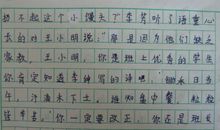 扔不起这个小馒头了"李芳听了语重心
长的对王小明说,"那是因为他们缺乏
家教,王小明,你是班上优秀的学生
你肯定知道李绅写的诗吧!锄禾日当
午,汗滴禾下土,谁知盘中餐,粒粒
皆辛苦。"你一定要改正,你还是班长